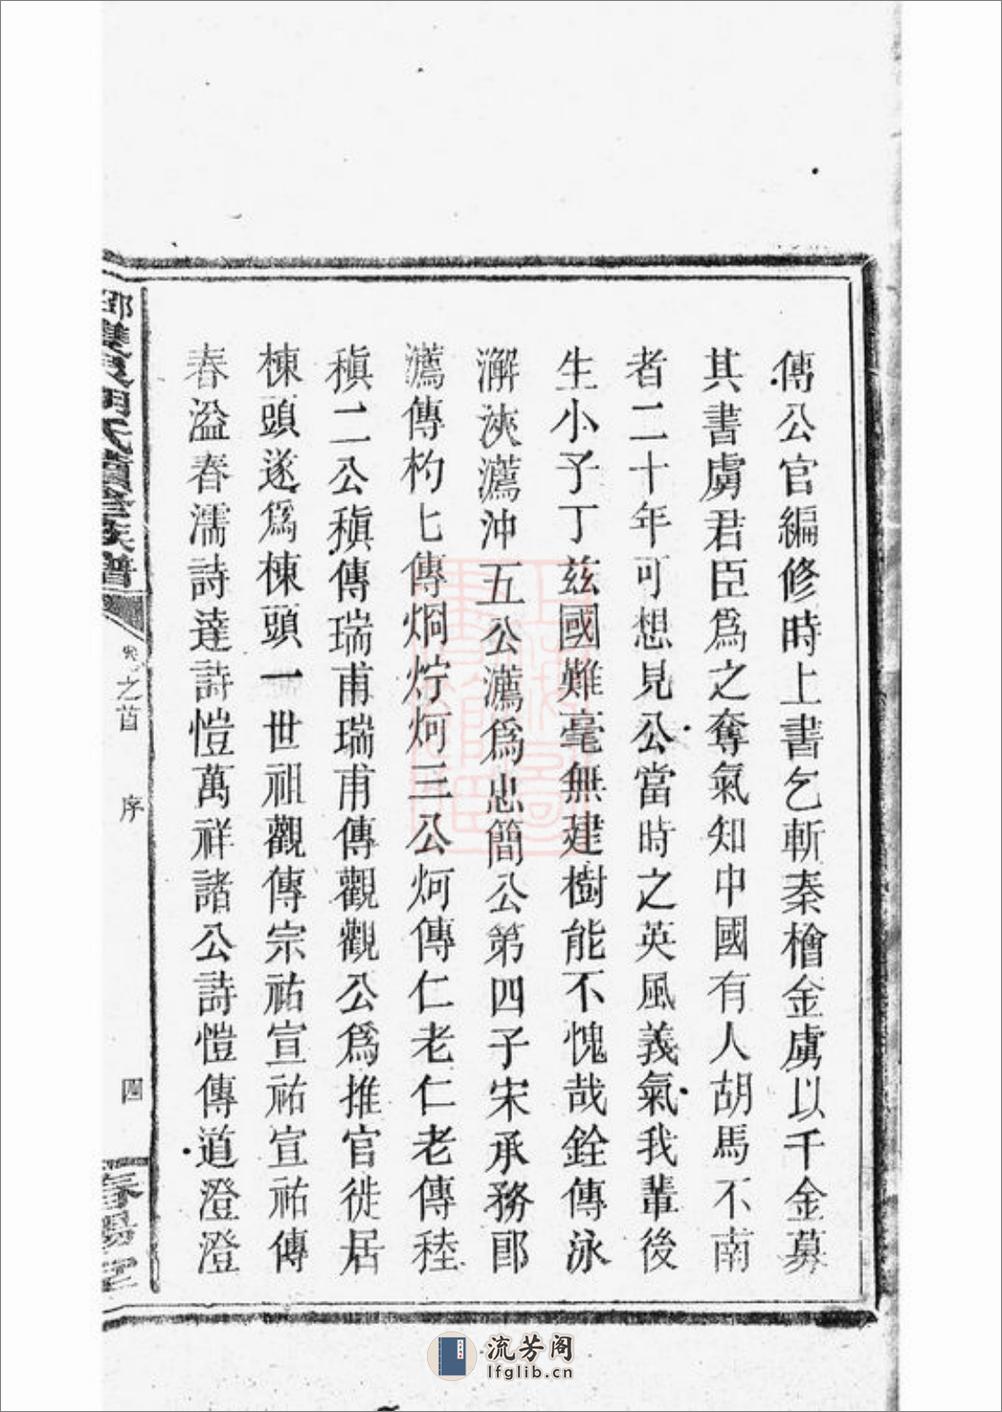 傳公官編修時上書乞斬秦檜金虜以千金募
其書虜君臣爲之奪氣知中國有人胡馬不南
者二十年可想見公當時之英風義氣我輩後
生小子丁兹國難毫無建樹能不愧哉銓傳泳
澥浹瀳沖五公瀳爲忠簡公第四子宋承務郎
瀳傳杓七傳烱炉炣三公炣傳仁老仁老傳稑
稹二公稹傳瑞甫瑞甫傳觀觀公爲推官徙居
棟頭遂爲棟頭一世祖觀傳宗祐宣祐宣祐傳
春溢春濡詩達詩愷萬祥諸公詩愷傳道澄澄
雙泉胡氏續全族譜
之首
序
四
流芳阁
lfglib.cn